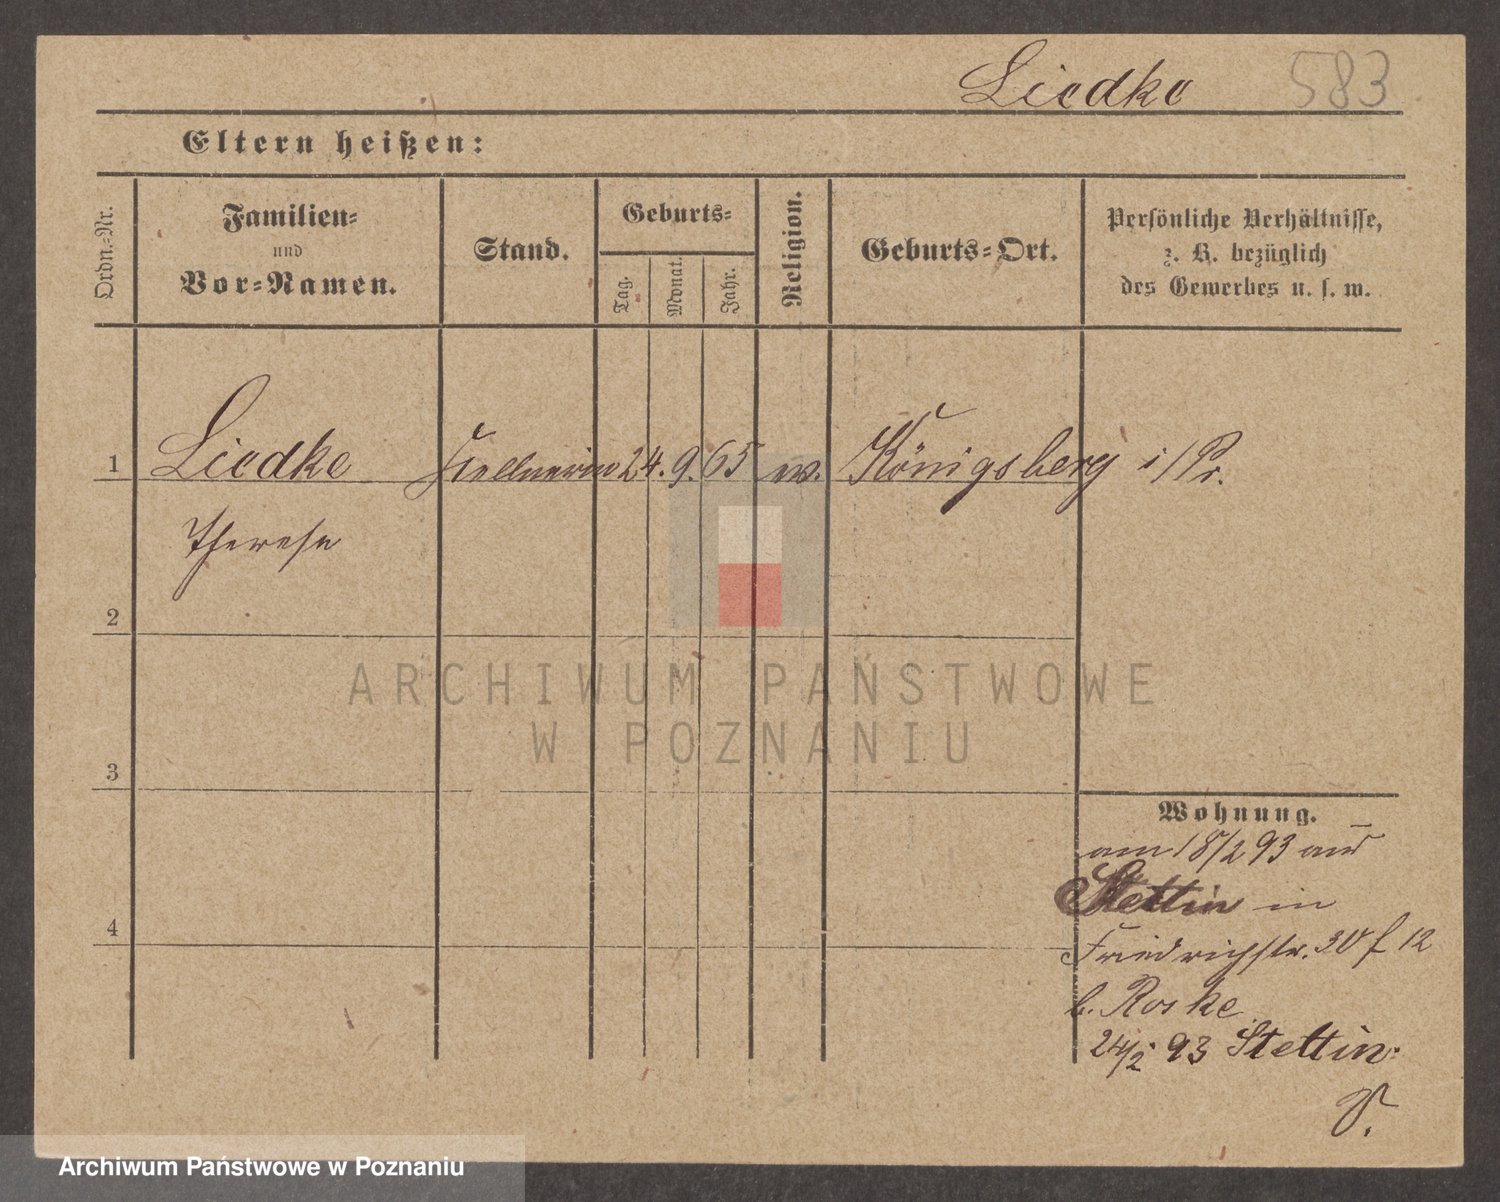 Liedke 583
Eltern heißen:
Ordn.-Nr.
Familien-
und
Vor-Namen.
Stand.
Geburts-
Tag.
Monat.
Jahr.
Religion.
Geburts-Ort.
Persönliche Verhältnisse,
z. B. bezüglich
des Gewerbes u. s. w.
1 Liedke Kellnerin 24. 9. 65 ev. Königsberg i/Pr.
Therese
2
3
4
Wohnung.
am 18/2 93 aus
Stettin in
Friedrichstr. 30 12
b. Roske
24/2 93 Stettin.
ARCHIWUM PAŃSTWOWE
W POZNANIU
Archiwum Państwowe w Poznaniu